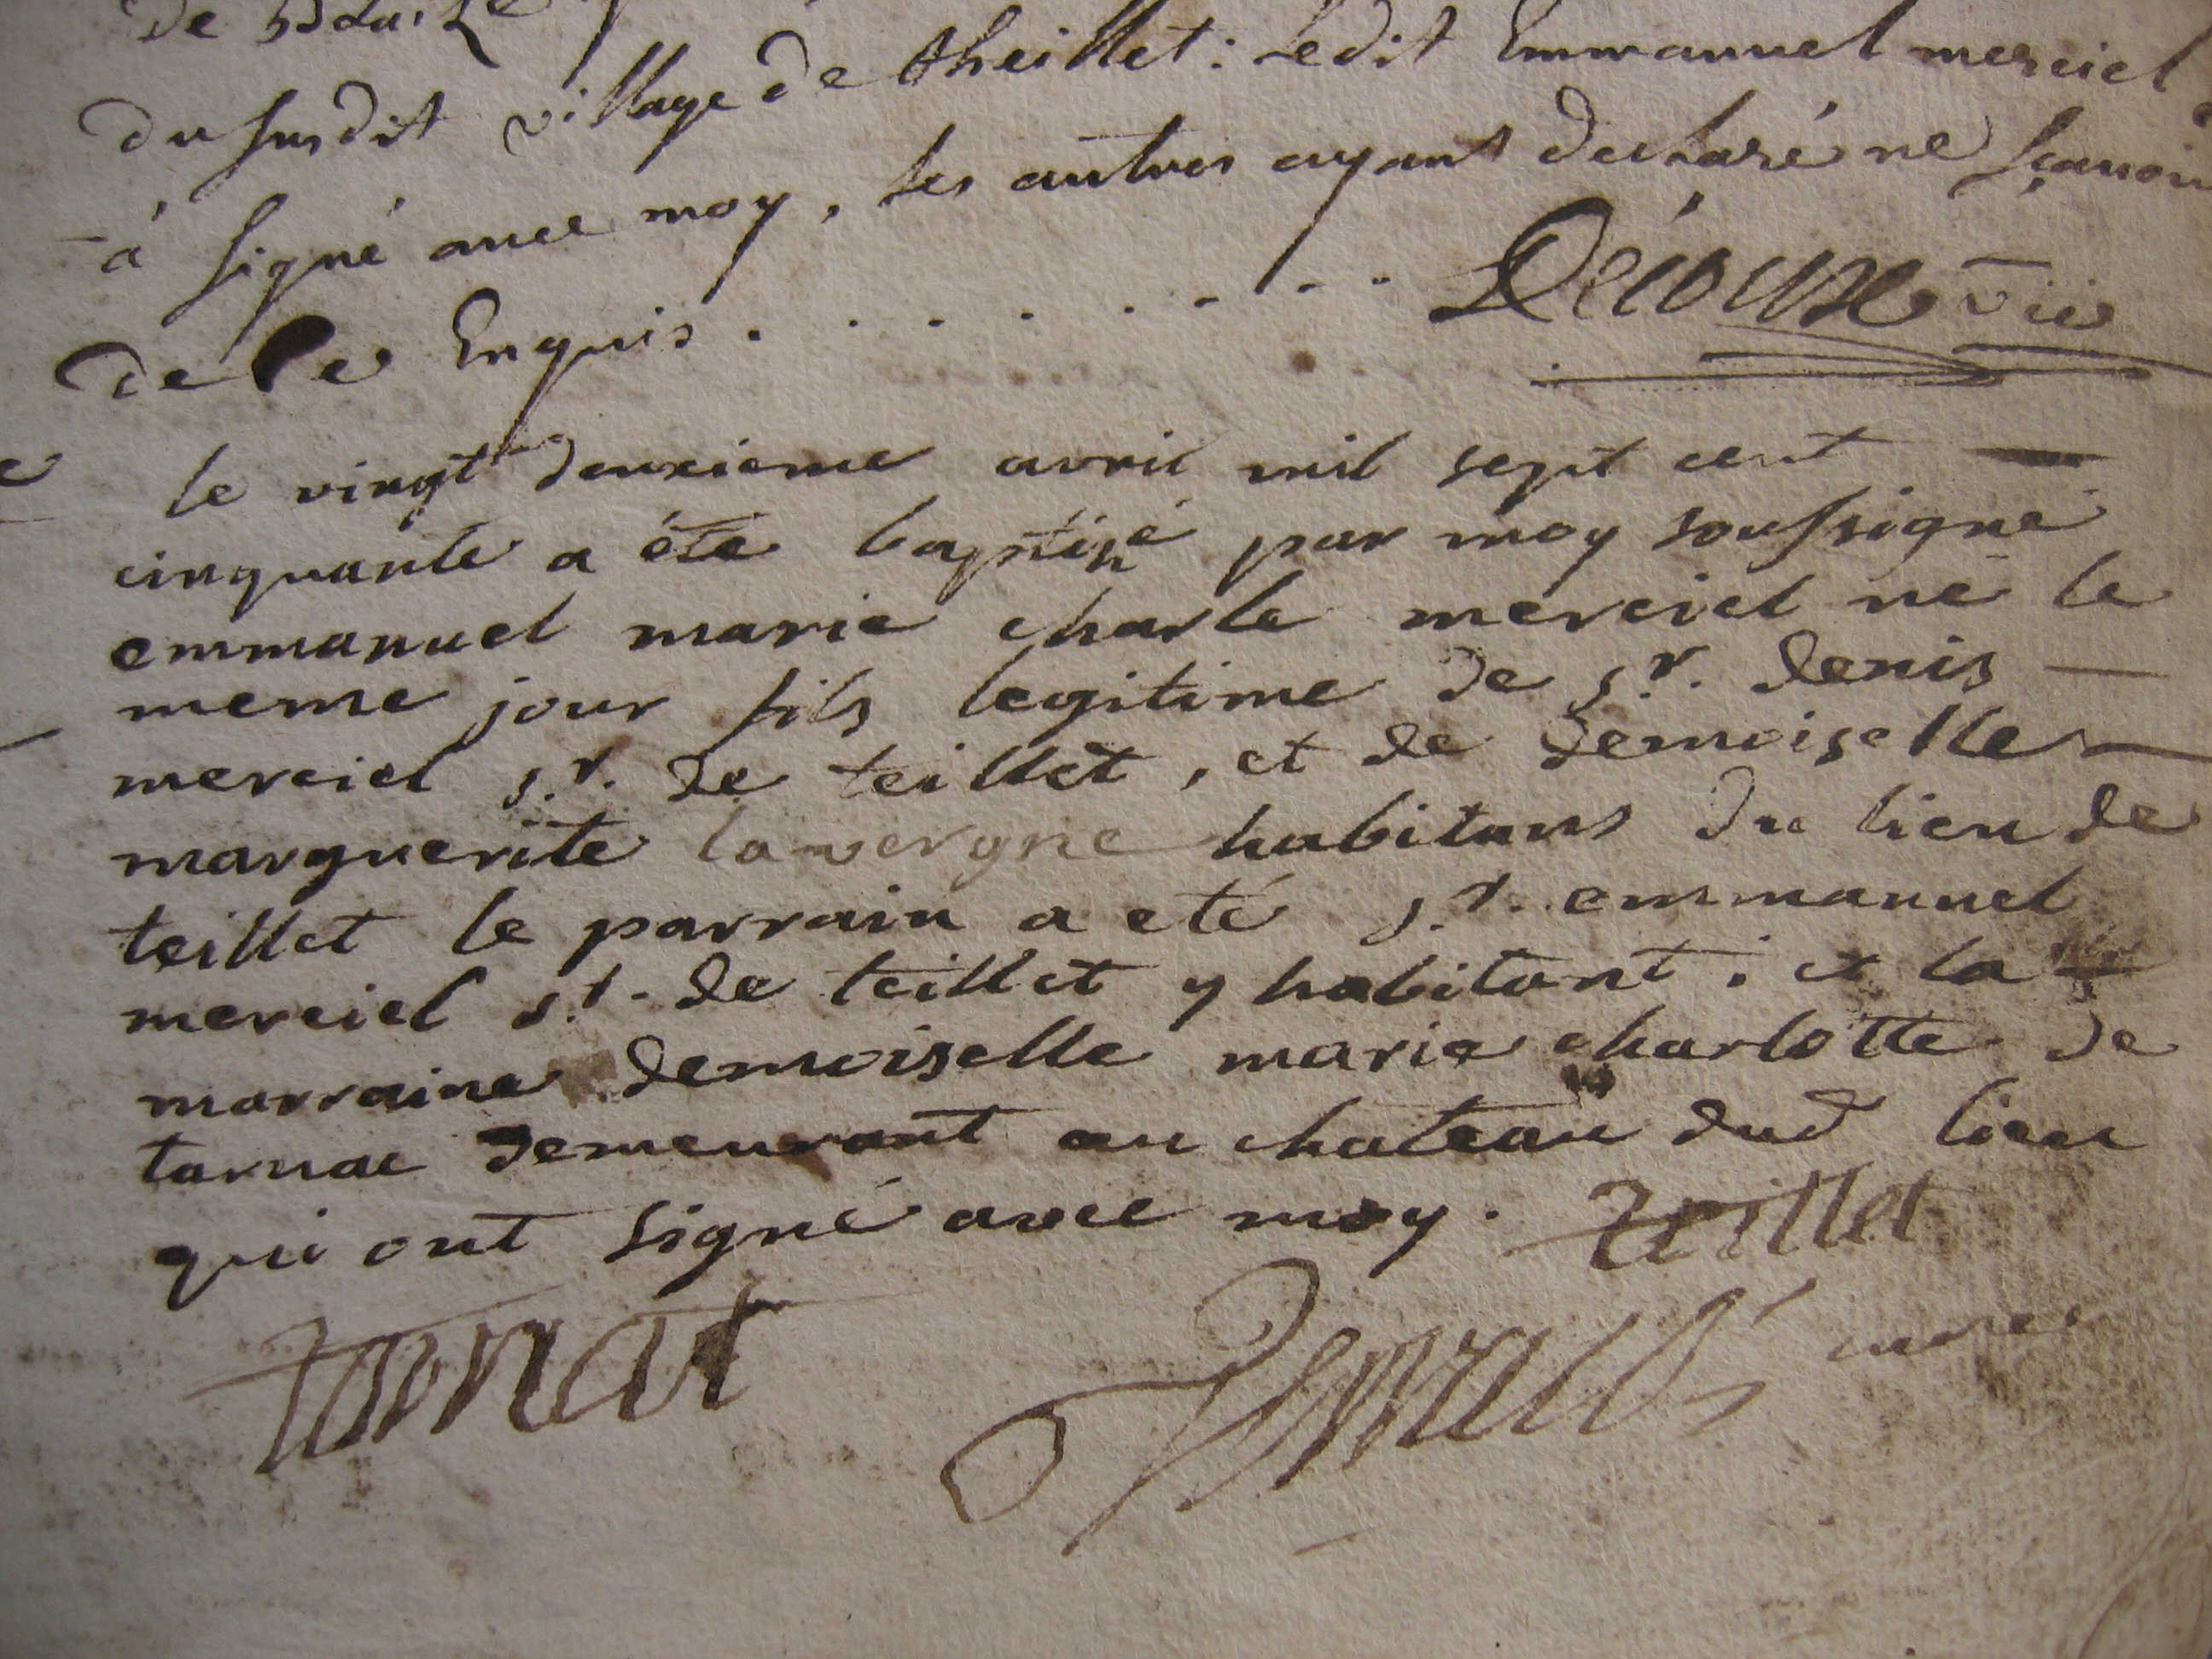 du susdit village de theillet : ledit Emmanuel merciel
à signé avec moy, les autres ayant declaré ne sçavoir
de ce Enquis . . . . . . . . Decoux vic
le vingt deuxieme avril mil sept cent
cinquante a été baptisé par moy soussigné
emmanuel marie charle merciel né le
meme jour fils legitime de sr. denis
merciel sr. de teillet, et de demoiselle
marguerite lavergne habitans du lieu de
teillet le parrain a eté sr. emmanuel
merciel sr. de teillet y habitant; et la
marraine demoiselle marie charlotte de
tarnac demeurant au chateau dud lieu
qui ont signé avec moy. teillet